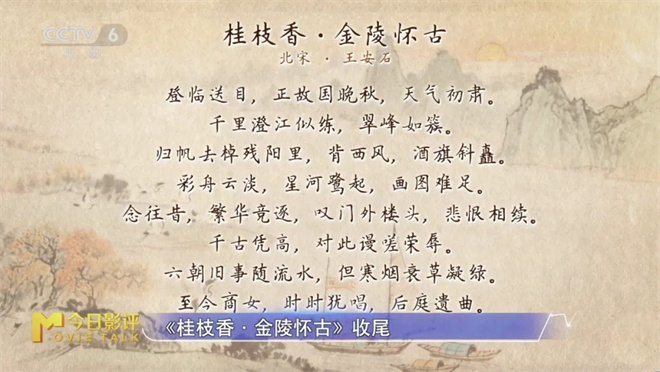 CCTV 6
桂枝香·金陵怀古
北宋·王安石
登临送目，正故国晚秋，天气初肃。
千里澄江似练，翠峰如簇。
归帆去棹残阳里，背西风，酒旗斜矗。
彩舟云淡，星河鹭起，画图难足。
念往昔，繁华竞逐，叹门外楼头，悲恨相续。
千古凭高，对此谩嗟荣辱。
六朝旧事随流水，但寒烟衰草凝绿。
至今商女，时时犹唱，后庭遗曲。
今日影评
MOVIE TALK
《桂枝香·金陵怀古》收尾